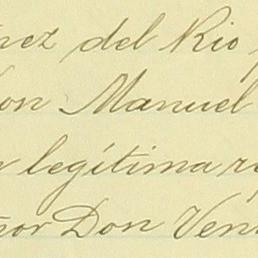 nez del Rio
on Manuel
legítima re
or Don Ven